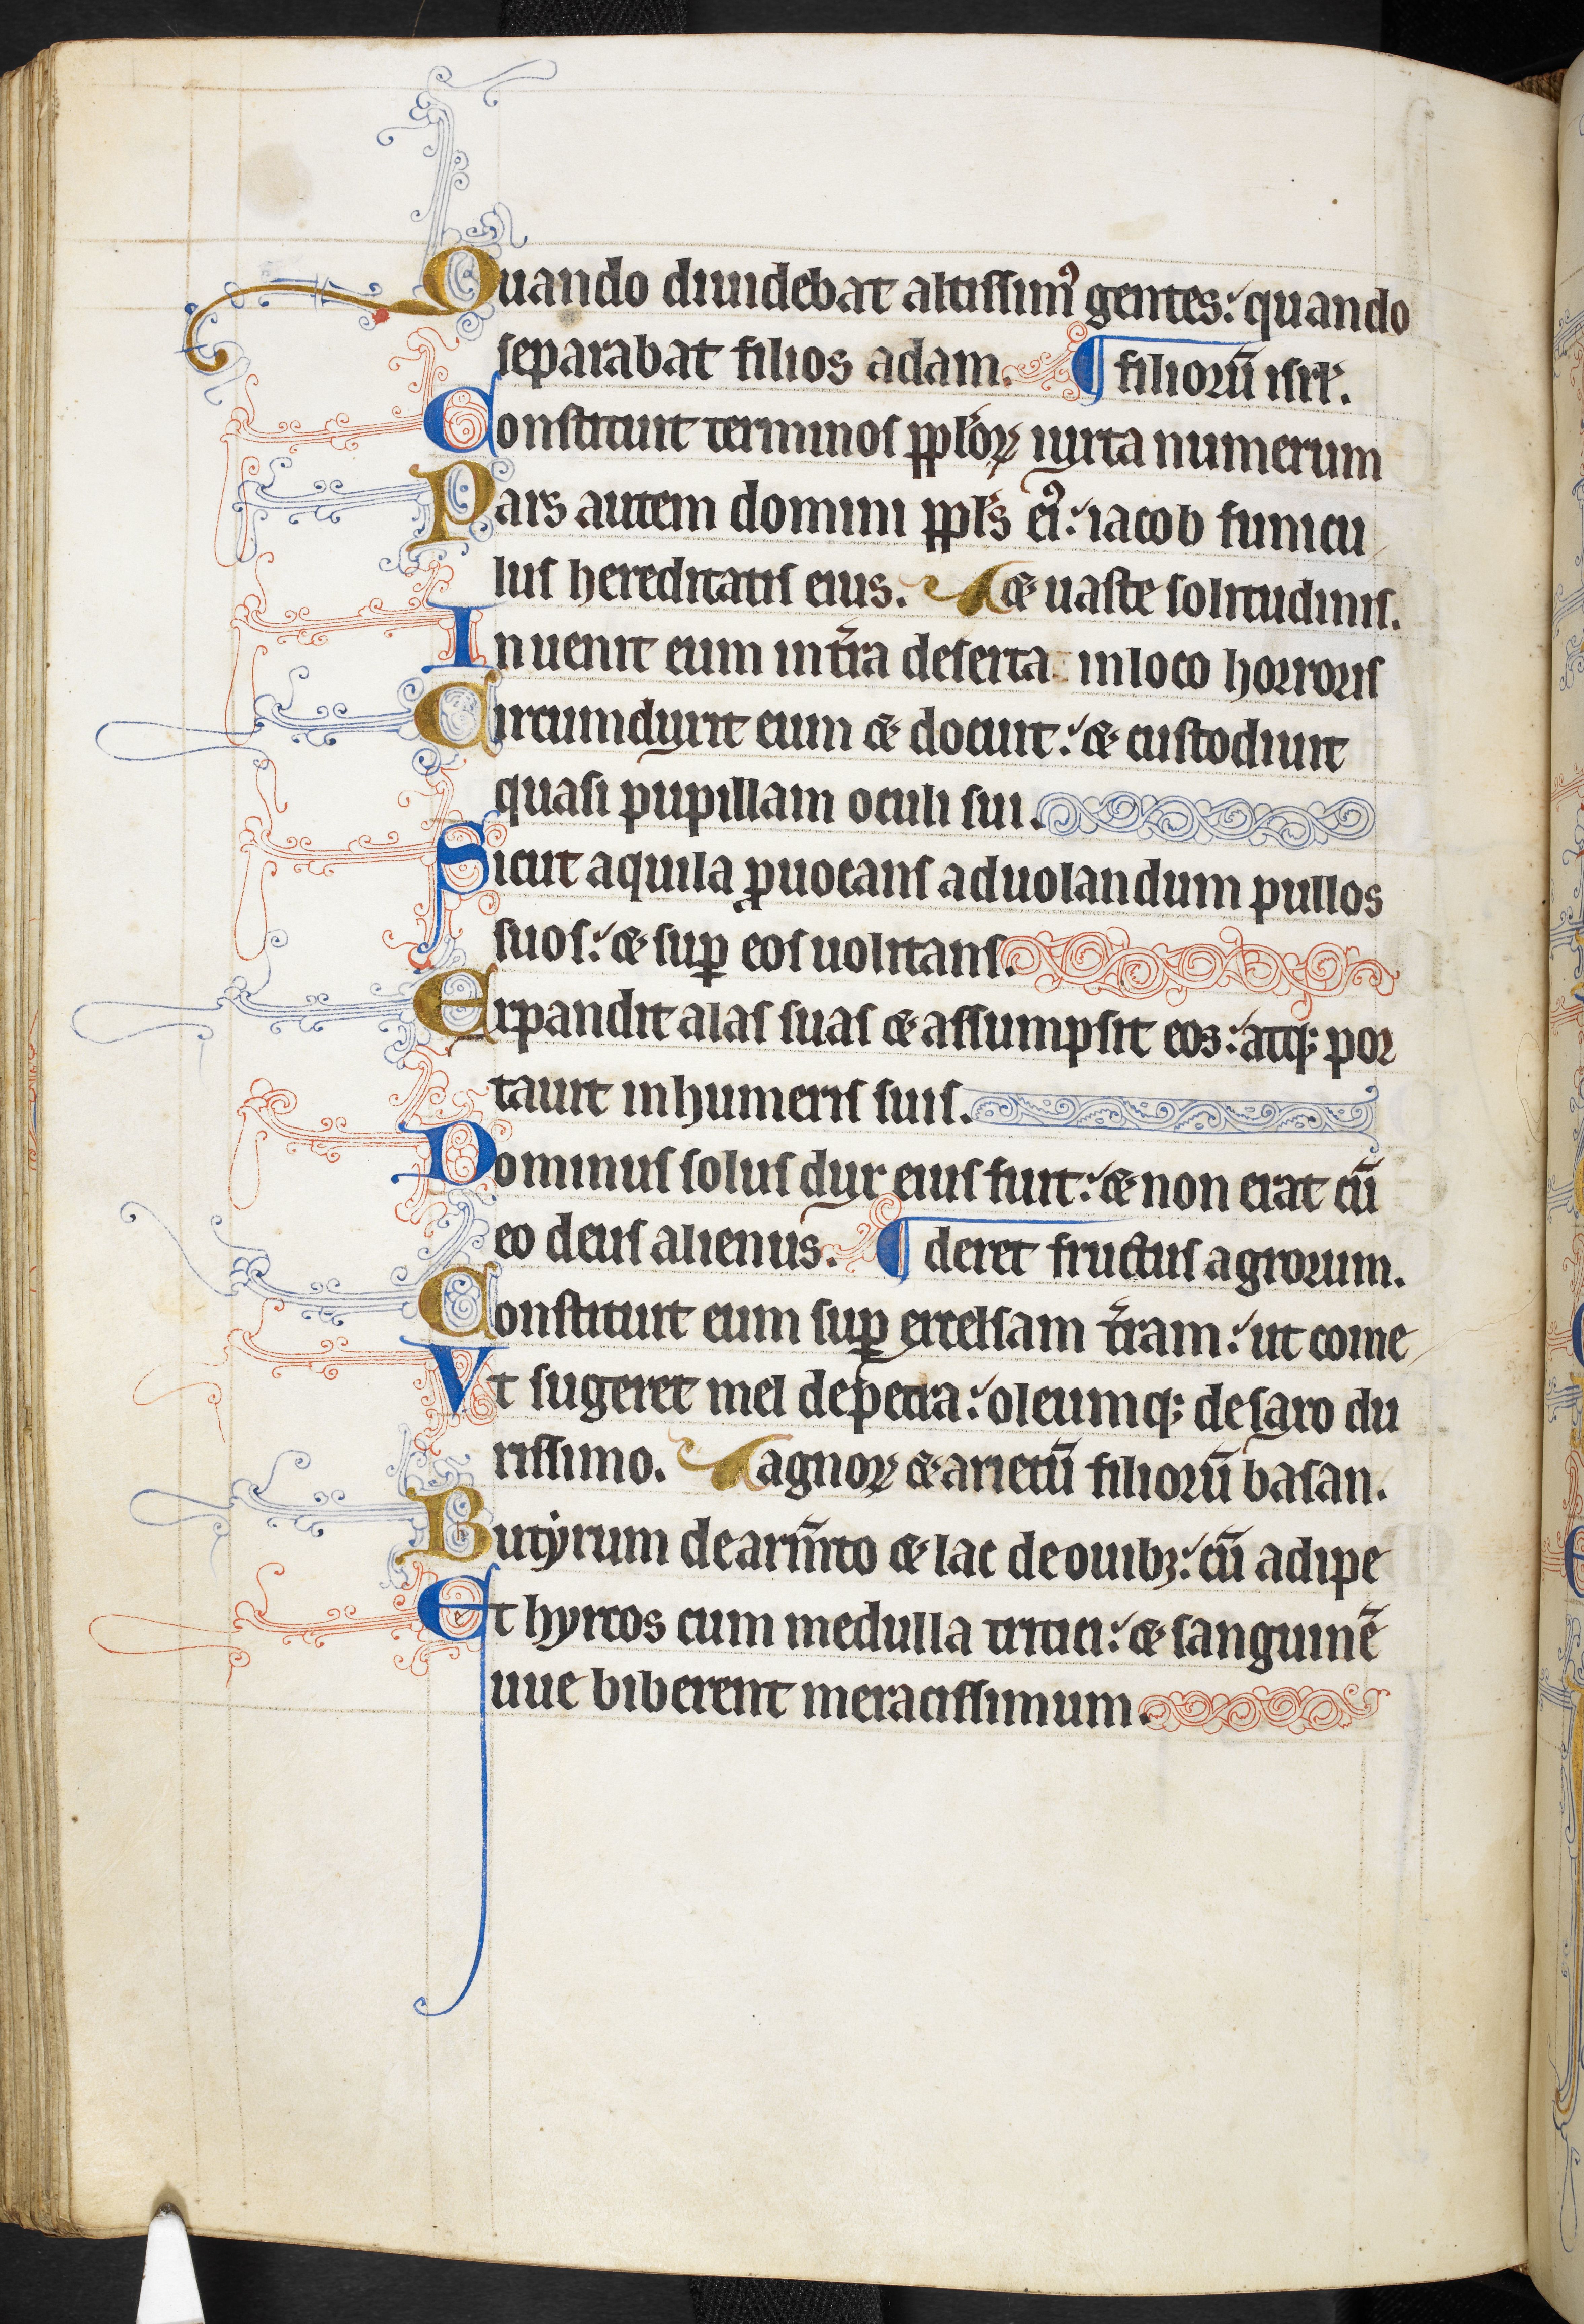 Quando diuidebat altissimꝰ gentes: quando
separabat filios adam. ¶ filioꝝ̄ isrl̕.
Constituit terminos ppl̕oꝝ iuxta numerum
Pars autem domini ppl̕s eiꝰ: iacob funicu
lus hereditatis eius. & uaste solitudinis.
Inuenit eum in tr̄a deserta in loco horroris
Circumduxit eum & docuit: & custodiuit
quasi pupillam oculi sui.
Sicut aquila ꝓuocans ad uolandum pullos
suos: & suꝑ eos uolitans.
Expandit alas suas & assumpsit eos: atqꝫ por
tauit in humeris suis.
Dominus solus dux eius fuit: & non erat cū
eo deus alienus. ¶ deret fructus agrorum.
Constituit eum suꝑ excelsam tr̄am: ut come
Vt sugeret mel de petra: oleumqꝫ de saxo du
rissimo. agnoꝝ & arietū filiorū basan.
Butẏrum de arm̄to & lac de ouibꝫ: cū adipe
Et hyrcos cum medulla tritici: & sanguinē
uue biberent meracissimum.